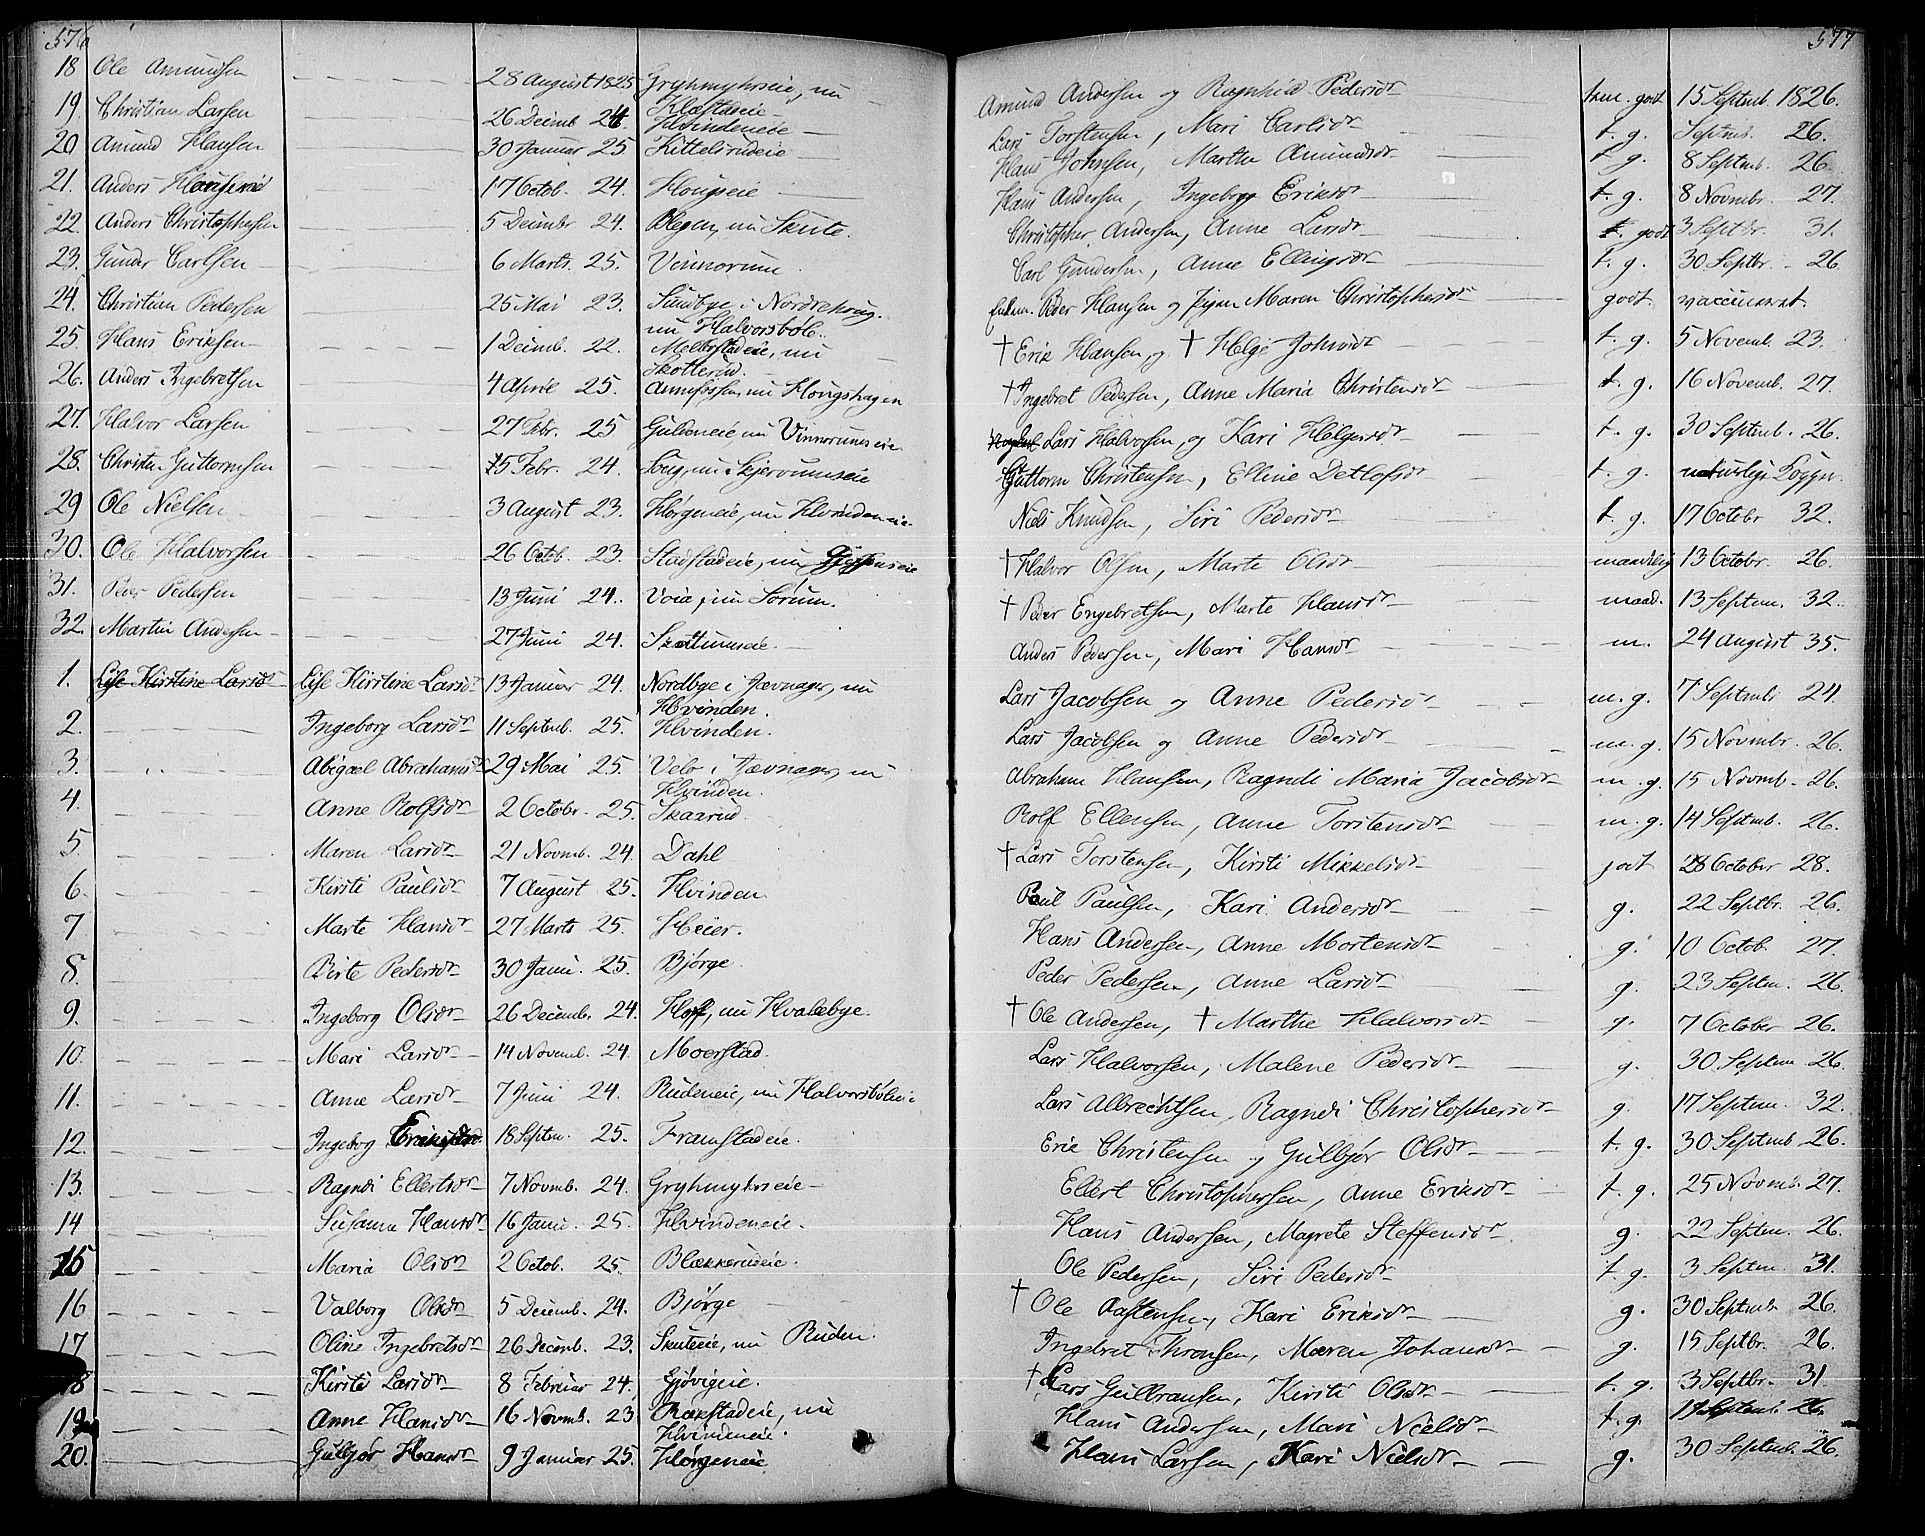 576
18 Ole Amundsen 28 August 1825 Gryhmyhrseie, nu
Klæstadeie
19. Christian Larsen 26 Decemb. 24 Hvindeneie
20 Amund Hansen 30 Januar 25. Kittelsrudeie
21. Anders 17 Octob. 24. Hougseie
22. Anders Christophersen 5 Decembr 24. Blegen, nu Skute.
23. Gunder Carlsen 6 Marts. 25. Vinnorum.
24. Christian Pedersen 25 Mai 23. Sundbye i Nordrehoug.
nu Halvorsbøle.
25. Hans Eriksen 1 Decemb. 22. Melbostadeie, nu
Skotterud.
26. Anders Ingebretsen 4 April 25. Annefossen, nu Hougshagen
27. Halvor Larsen 27 Febr. 25 Guldeneie nu Vinnorumseie
28. Christen Guttormsen 15 Febr. 24. Soug, nu Skjervumseie
29 Ole Nielsen 3 August 23. Hørgeneie, nu Hvindeneie
30. Ole Halvorsen 26 Octob. 23. Stadstadeie, nu
31. Peder Pedersen 13 Juni 24. Voia, nu Sørum.
32. Martin Andersen 27 Juni 24. Skattumseie.
1. Lise Kirstine Larsdr Lise Kirstine Larsdr 13 Januar 24. Nordbye i Jævnager, nu
Hvinden.
2. Ingeborg Larsdr 11 Septemb. 25. Hvinden.
3. Abigael Abrahamsdr 29 Mai 25. Velo i Jævnager, nu
Hvinden.
4. Anne Rolfsdr 2 Octobr. 25. Skaarud.
5. Maren Larsdr 21 Novmb. 24. Dahl
6. Kirsti Paulsdr 7 August 25. Hvinden
7 Marte Hansdr 27 Marts 25. Heier.
8. Birte Pedersdr 30 Janu. 25. Bjørge
9. Ingeborg Olsdr 26 Decemb. 24. Hoff, nu Hvalebye.
10. Mari Larsdr 14 Novemb. 24. Moerstad.
11. Anne Larsdr 7 Juni 24. Rudeneie, nu Halvorsbøleie
12. Ingeborg 18 Septem. 25. Framstadeie.
13. Ragndi Ellertsdr 7 Novmb. 24. Gryhmyhrseie
14 Susanne Hansdr 16 Janu. 25. Hvindeneie.
15 Maria Olsdr 2 Octob. 25. Blækkerudeie.
16 Valborg Olsdr 5 Decemb. 24. Bjørge
17. Oline Ingebretsdr 26 Decemb. 23. Skuteeie, nu Ruden.
18 Kirsti Larsdr 8 Februar 24. Gjøvigeie.
19 Anne Hansdr 16 Novmb. 23 Rækstadeie, nu
Hvindeneie.
20. Gulbjør Hansdr 9 Januar 25. Hørgeneie
577
Amund Andersen og Ragnhild Pedersdr tem. godt 15 Septmb. 1826.
Lars Torstensen, Mari Carlsdr t. g. Septmb. 26.
Hans Johnsen, Marthe Amundsdr t. g. 8 Septmb. 26.
Hans Andersen, Ingeborg Eriksdr t. g. 8 Novmbr. 27.
Christopher Andersen, Anne Larsdr t. godt 3 Septbr. 31.
Carl Gundersen, Anne Ellingsdr t. g. 30 Septbr. 26
Enkem. Peder Hansen og Pigen Maren Christophersdr godt vaccineret.
† Erik Hansen, og † Helge Johnsdr t. g. 5 Novemb. 23.
† Ingebret Pedersen, Anne Maria Christensdr t. g. 16 Novemb. 27.
Lars Halvorsen og Kari Helgesdr t. g. 30 Septemb. 26.
Guttorm Christensen, Elline Detlefsdr t. g. naturlige Kopper.
Niels Knudsen, Siri Pedersdr t. g. 17 Octobr 32.
† Halvor Olsen, Marte Olsdr maadelig 13 Octobr. 26.
† Peder Engebretsen, Marte Hansdr maad. 13 Septem. 32.
Anders Pedersen, Mari Hansdr m. 24 August 35.
Lars Jacobsen og Anne Pedersdr m. g. 7 Septembr 24.
Lars Jacobsen og Anne Pedersdr m. g. 15 Novmbr. 26.
Abraham Hansen, Ragndi Maria Jacobsdr m. g. 15 Novmb. 26.
Rolf Ellensen, Anne Torstensdr m. g. 14 Septmb. 26.
† Lars Torstensen, Kirsti Mikkelsdr godt 28 October 28.
Paul Paulsen, Kari Andersdr g. 22 Septbr. 26.
Hans Andersen, Anne Mortensdr g. 10 Octob. 27.
Peder Pedersen, Anne Larsdr g. 23 Septem. 26.
† Ole Andersen, † Marthe Halvorsdr g. 7 October 26.
Lars Halvorsen, Malene Pedersdr g. 30 Septem 26.
Lars Albrechtsen, Ragndi Christophersdr g. 17 Septem. 32.
Eric Christensen og Gulbjør Olsdr t. g. 30 Septemb 26.
Ellert Christophersen, Anne Eriksdr t. g. 25 Novmb. 27.
Hans Andersen, Magrete Steffensdr g. 22 Septem. 26.
Ole Pedersen, Siri Pedersdr t. g. 3 Septem. 31.
† Ole Aastensen, Kari Eriksdr g. 30 Septembr 26.
Ingebret Thronsen, Maren Johansdr g. 15 Septbr. 26.
† Lars Gulbransen, Kirsti Olsdr t. g. 3 Septbr. 31
Hans Andersen, Mari Nielsdr t. g. Septemb. 26.
Hans Larsen, Kari Nielsdr g. 30 Septemb. 26.